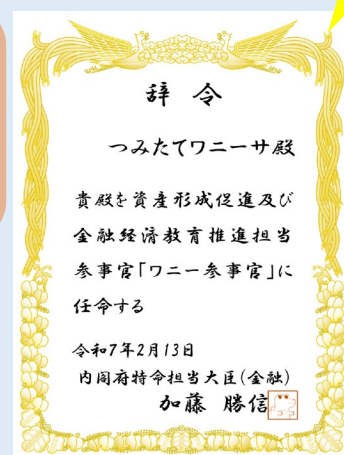 辞令
つみたてワニーサ殿
貴殿を資産形成促進及び
金融経済教育推進担当
参事官「ワニー参事官」に
任命する
令和7年2月13日
内閣府特命担当大臣(金融)
加藤 勝信